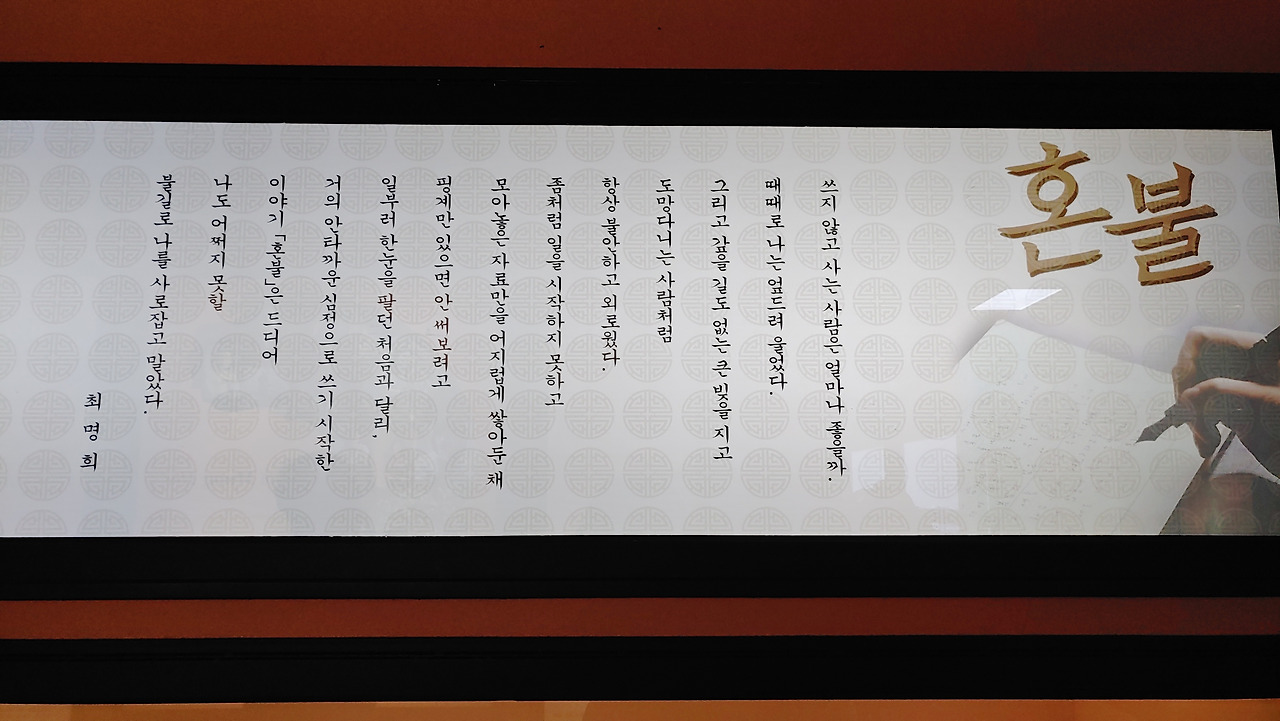 혼불
쓰지 않고 사는 사람은 얼마나 좋을까.
때때로 나는 엎드려 울었다.
그리고 갚을 길도 없는 큰 빚을 지고
도망다니는 사람처럼
항상 불안하고 외로웠다.
좀처럼 일을 시작하지 못하고
모아놓은 자료만을 어지럽게 쌓아둔 채
핑계만 있으면 안 써보려고
일부러 한눈을 팔던 처음과 달리,
거의 안타까운 심정으로 쓰기 시작한
이야기 「혼불」은 드디어
나도 어쩌지 못할
불길로 나를 사로잡고 말았다.
최명희